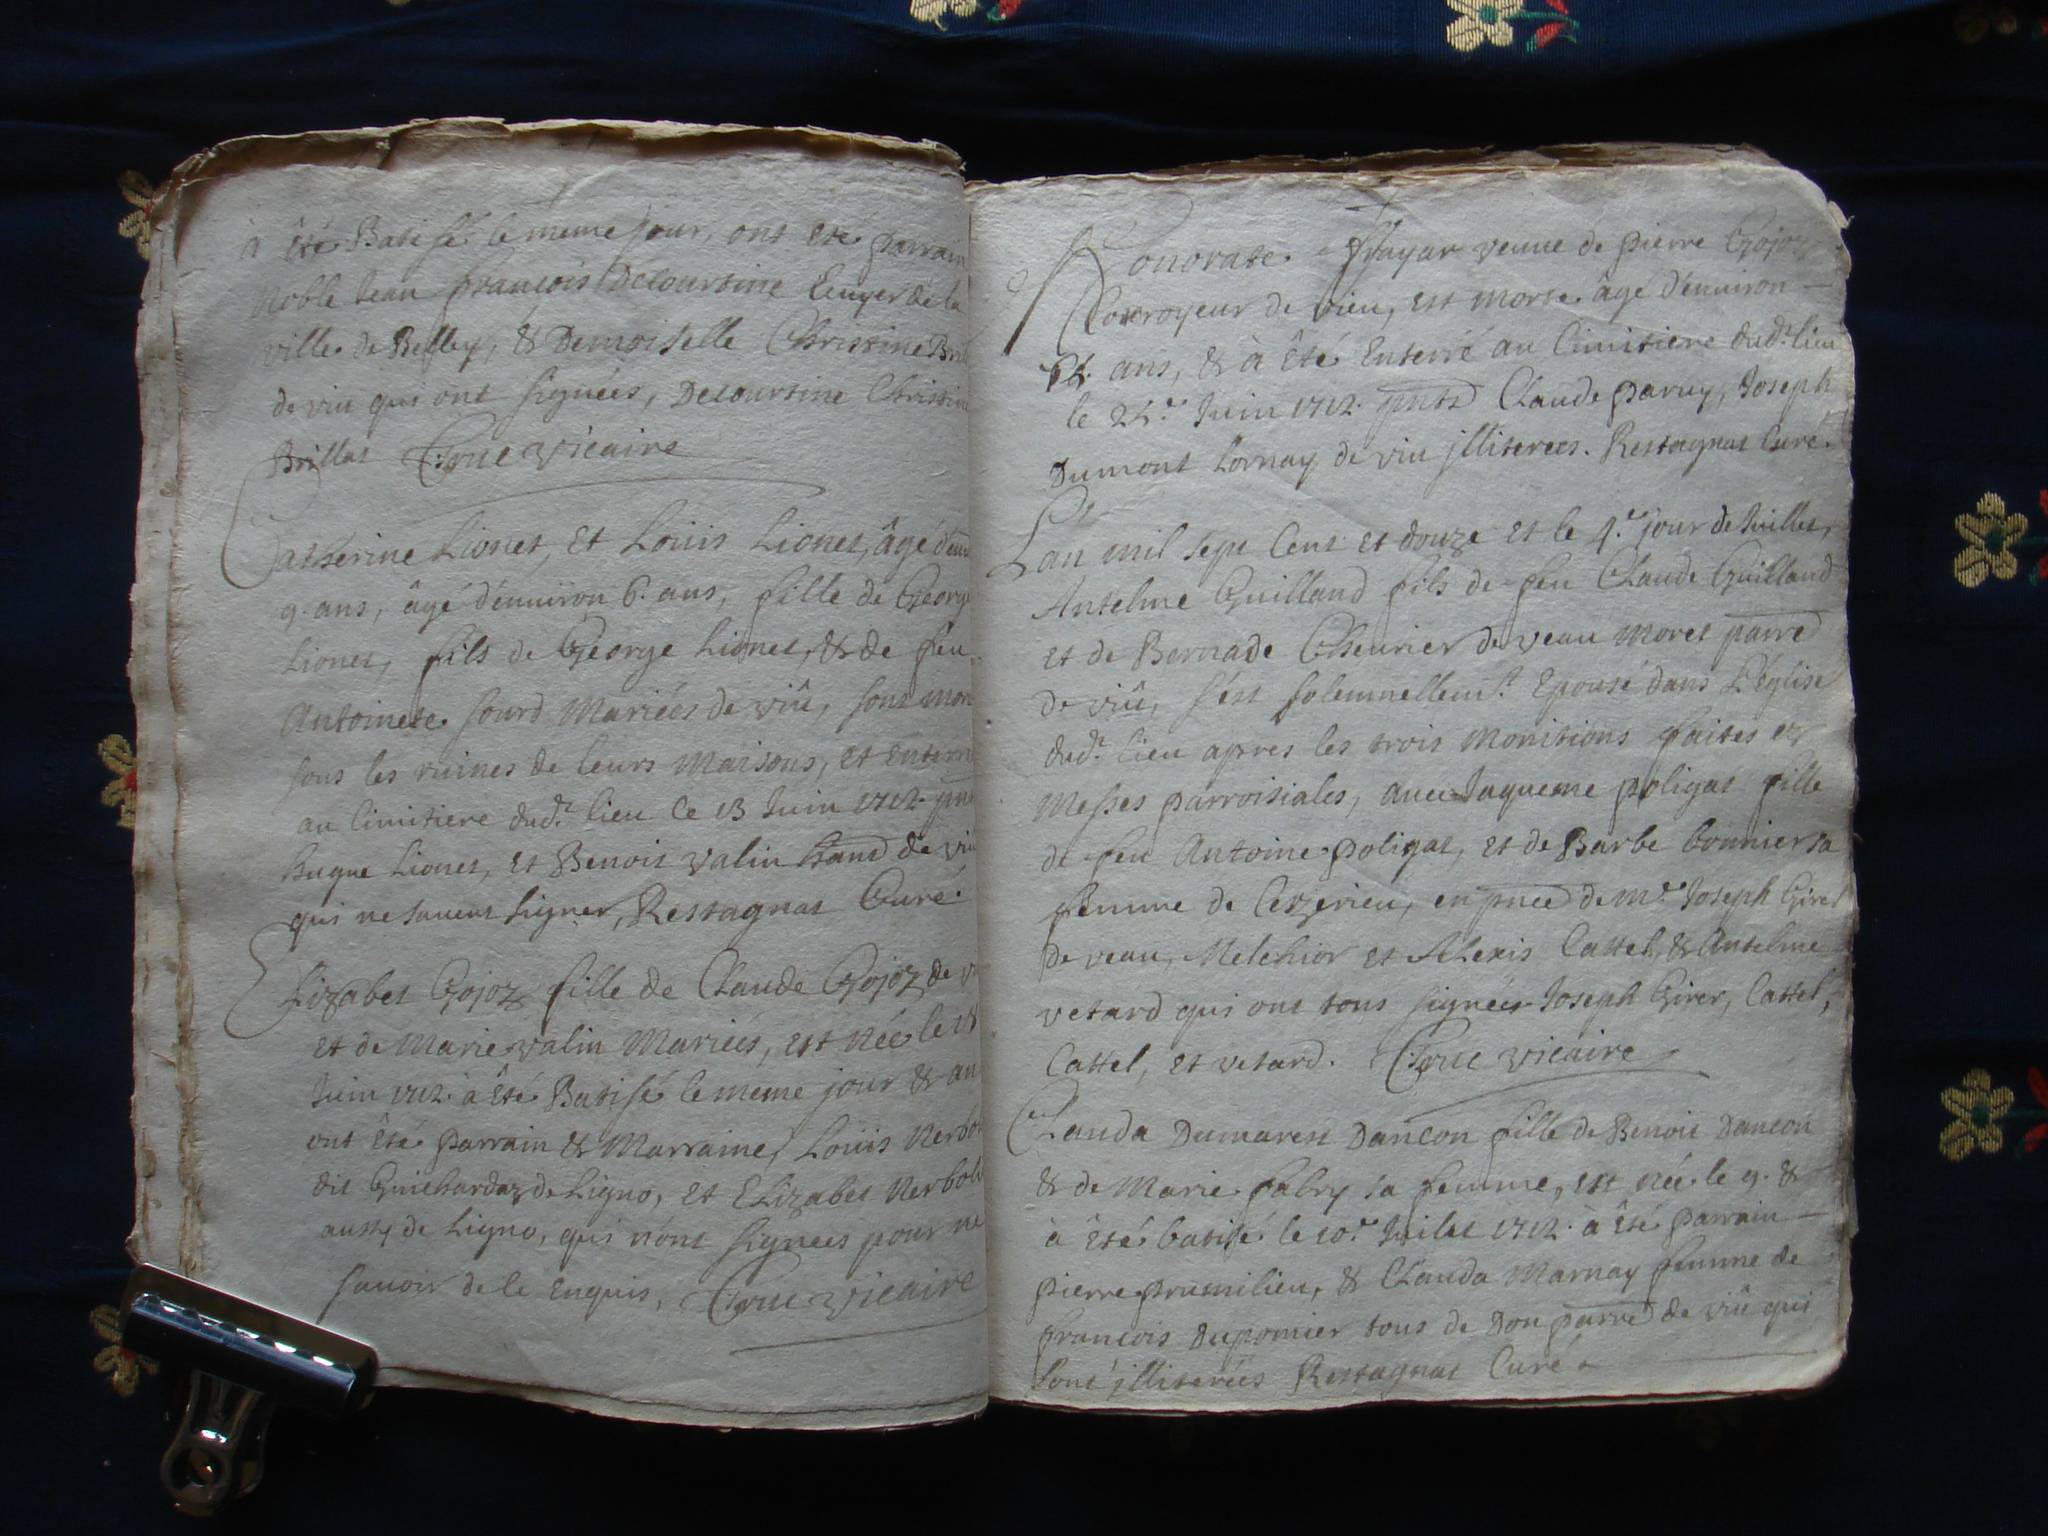 à êté Batisé le même jour, ont eté parrain
Noble Jean françois Decoursine Ecuyer de la
ville de Belley, & Demoiselle Christine Bri
de viu qui ont signées, Decoursine Christine
Brillat Truc vicaire
Catherine Lionet, Et Loüis Lionet, âgé d'enui
9. ans, âgé d'enuiron 6. ans, fille de George
Lionet, fils de George Lionet, & de feu
Antoinete sourd Mariées de viû, sont mort
sous les ruines de leurs Maisons, Et Enterré
au Cimitiere dud.t lieu le 13 Juin 1712. pnt
hugue Lionet, Et Benoit valin de viu
qui ne sauent signer, Restagnat Curé.
Elizabet Gojoz fille de Claude Gojoz de v
Et de Marie valin Mariées, est née le 18
Juin 1712. à êté Batisé le même jour & an
ont êté parrain & Marraine, Loüis Nerbol
dit Guichardaz de Ligno, et Elizabet Nerbolli
aussy de Ligno, qui n'ont signées pour ne
sauoir de le Enquis, Truc vicaire
Honorate frayar veuue de pierre Gojoz
Corroyeur de vieu, est morte âgé d'enuiron
ans, & à êté Enterré au Cimitiere dud.t lieu
le 24.e Juin 1712. pnts Claude paruy, Joseph
Dumont Lornay de viu jlliterees. Restagnat Curé.
L'an mil sept Cent et douze et le 4.e jour de Juillet,
Antelme Guilland fils de feu Claude Guilland
et de Bernade Cheurier de veau Moret parre
de viû, s'est solemnellem.t Epousé dans L'Eglise
dud.t lieu apres les trois Monitions faites es
Messes parroisiales, auec Jaqueme poligat fille
de feu Antoine poligat, et de Barbe bonnier sa
femme de Cezerieu, en pnce de m.e Joseph Giret
de veau, Melchior et Alexis Cattel, & Antelme
vetard qui ont tous signées Joseph Giret, Cattel,
Cattel, et vetard. Truc vicaire
Clauda Dumarest Dancon fille de Benoit Dancon
& de Marie fabry sa femme, est née le 9. &
à êté batisé le 10.e Juilet 1712. à êté parrain
pierre prumilieu, & Clauda Marnay femme de
françois Dupomier tous de Don parre de viû qui
sont jlliterées Restagnat Curé